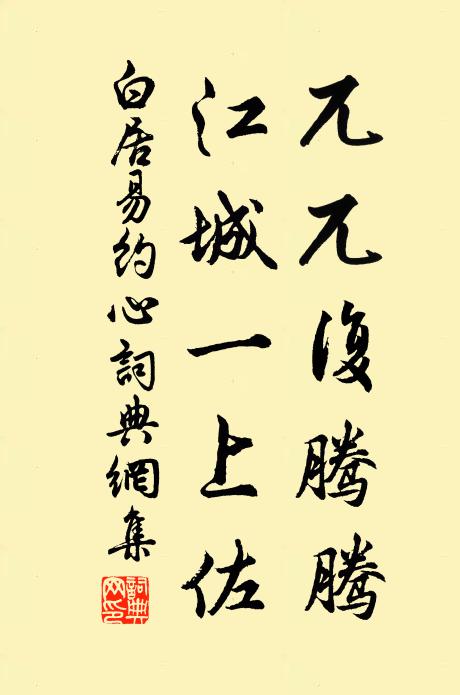 兀兀復騰騰
江城一上佐
白居易約心詞典網集
詞典
网印